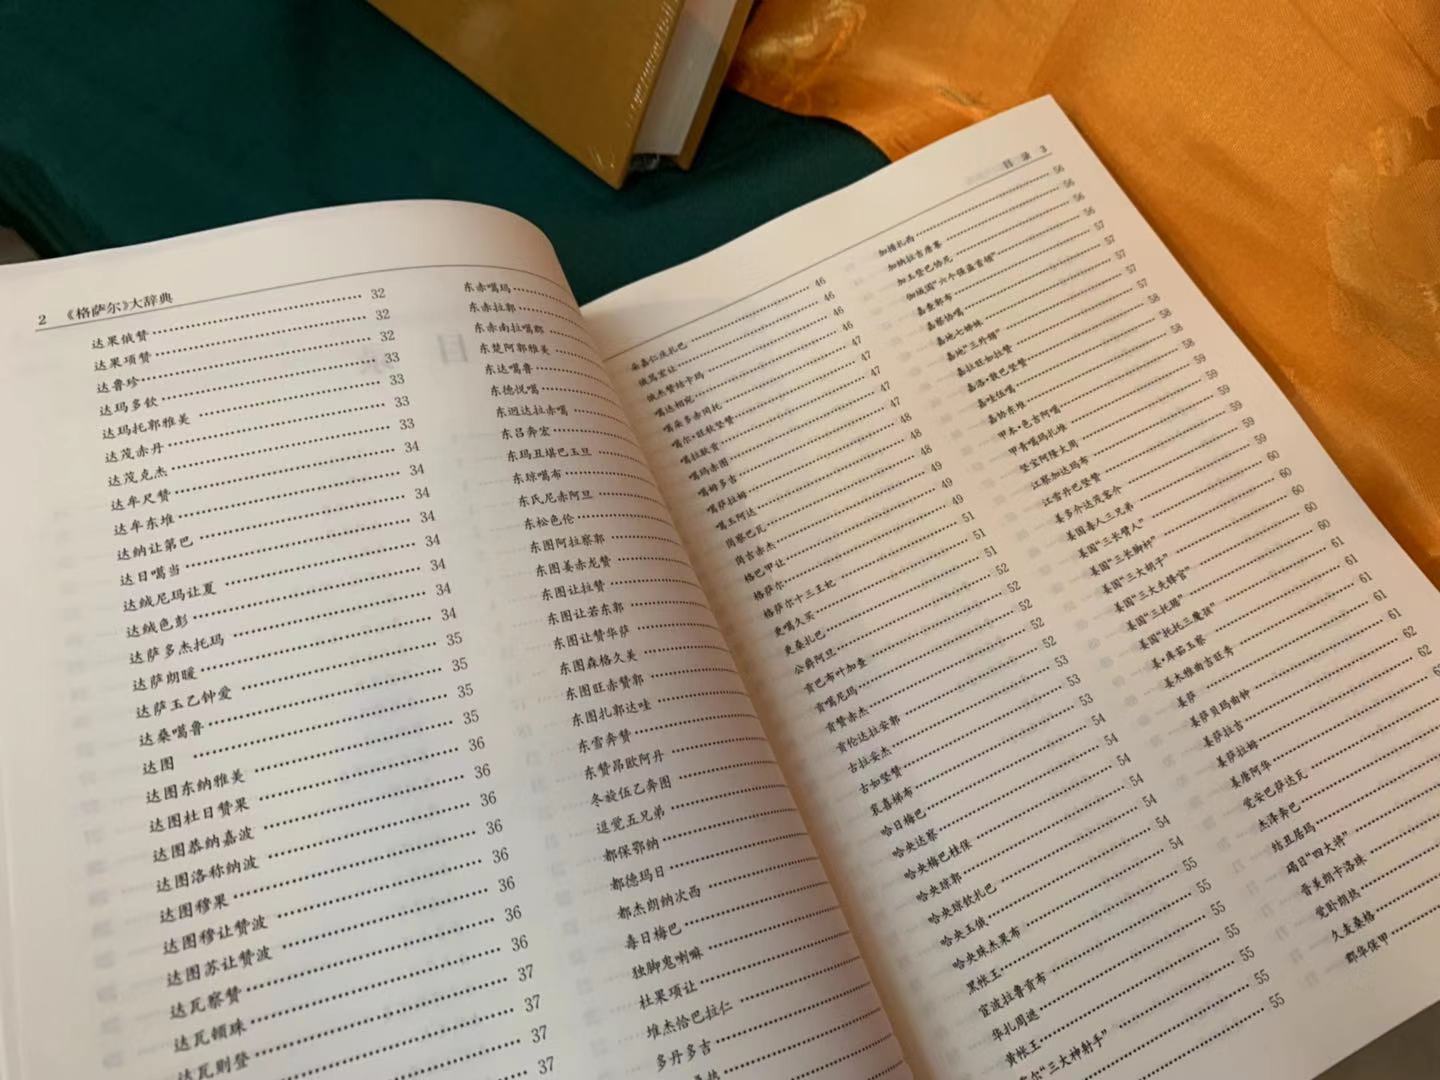 2 《格萨尔》大辞典
达果俄赞 32
达果项赞 32
达鲁珍 32
达玛多钦 33
达玛托郭雅美 33
达茂赤丹 33
达茂克杰 33
达牟尺赞 34
达牟东堆 34
达纳让第巴 34
达日噶当 34
达绒尼玛让夏 34
达绒色彭 34
达萨多杰托玛 34
达萨朗暖 34
达萨玉乙钟爱 35
达桑噶鲁 35
达图 35
达图东纳雅美 35
达图杜日赞果 36
达图恭纳嘉波 36
达图洛称纳波 36
达图穆果 36
达图穆让赞波 36
达图苏让赞波 36
达瓦察赞 36
达瓦顿珠 37
达瓦则登 37
东赤噶玛
东赤拉郭
东赤南拉噶郎
东楚阿郭雅美
东达噶鲁
东德悦噶
东迥达拉赤噶
东吕奔宏
东玛丑堪巴玉旦
东琼噶布
东氏尼赤阿旦
东松色伦
东图阿拉察郭
东图姜赤龙赞
东图让拉赞
东图让若东郭
东图让赞华萨
东图森格久美
东图旺赤赞郭
东图扎郭达哇
东雪奔赞
东赞昂欧阿丹
冬旋伍乙奔图
逗觉五兄弟
都保鄂纳
都德玛日
都杰朗纳次西
毒日梅巴
独脚鬼喇嘛
杜果项让
堆杰恰巴拉仁
多丹多吉
目录 3
朵嘉仁波扎巴 46
俄杰赞桔卡玛 46
噶达相宛 47
噶朵多赤同托 47
噶尔·旺钦坚赞 47
噶拉耿贡 47
噶玛赤图 48
噶姆多吉 48
噶萨拉姆 48
噶玉阿达 49
岗察巴瓦 49
岗吉赤杰
格巴甲让 51
格萨尔 51
格萨尔十三王妃 52
更噶久买 52
更桑扎巴 52
公爵阿旦 52
贡巴布叶加查 53
贡噶尼玛 53
贡赞赤杰 53
贡伦达拉安郭 54
古拉妥杰 54
古如坚赞 54
衮喜梯布 54
哈日梅巴 54
哈央达察 54
哈央梅巴桂保 54
哈央琼郭 55
哈央琼钦扎巴 55
哈央玉侦 55
哈央珠杰果布 55
黑帐王 55
宦波拉鲁贡布 55
华扎周速 55
黄帐王
尔“三大神射手”
加措扎西 56
加纳拉吉唐塞 56
加玉登巴协尼 56
伽域国“六个强盗首领” 56
嘉查郭布 57
嘉察协噶 57
嘉地七姊妹 57
嘉地“三外甥” 57
嘉拉旺加拉赞 57
嘉洛·敦巴坚赞 58
嘉哇伍噶 58
嘉协东堆 58
甲本·色吉阿噶 58
甲青噶玛扎堆 59
坚宝阿隆太周 59
江察加达玛布 59
江雪丹巴坚赞 59
姜多介达茂塞介 59
姜国毒人三兄弟 60
姜国“三长臂人” 60
姜国“三长脚杆” 60
姜国“三大胡子” 60
姜国“三大先锋官” 61
姜国“三托踏” 61
姜国“托托三魔孩” 61
姜·库茹玉察 61
姜木雅曲吉旺秀 61
姜萨 62
姜萨贝玛曲钟 62
姜萨拉吉
姜萨拉姆
姜唐阿华
觉安巴萨达瓦
杰泽奔巴
结且居玛
碣日“四大将”
晋美朗卡洛珠
觉卧朗热
久麦桑格
郡华保甲